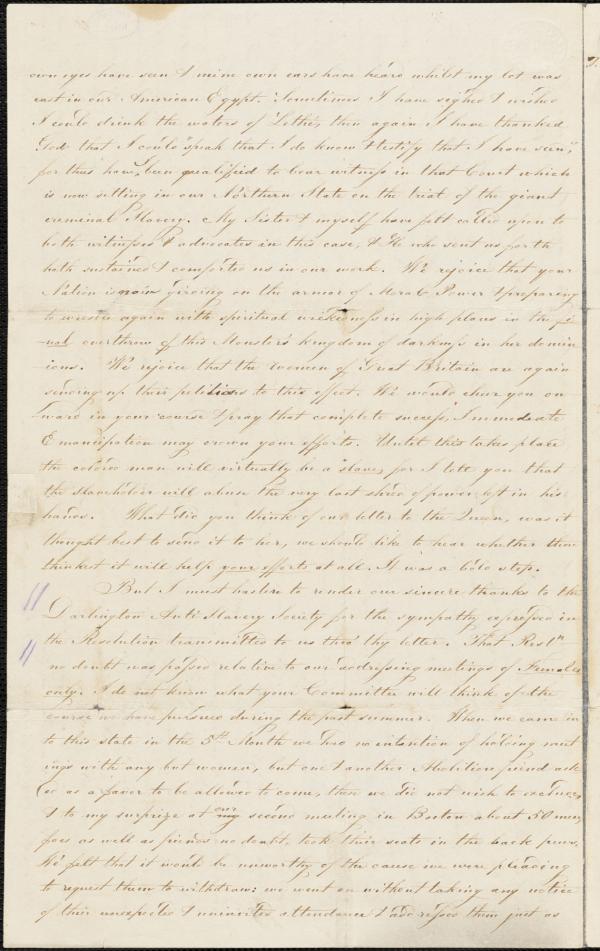 own eyes have seen & mine own ears have heard whilst my lot was
cast in our American Egypt. Sometimes I have sighed & wished
I could drink the waters of Lethe, then again I have thanked
God that I could speak that I do know & testify that I have seen,
for thus have been qualified to bear witness in that Court which
is now sitting in our Northern State on the trial of the giant
criminal Slavery. My Sister & myself have felt called upon to
both witnesses & advocates in this case, & He who sent us forth
hath sustained & comforted us in our work. We rejoice that your
Nation is again girding on the armor of Moral Power & preparing
to wrestle again with spiritual wickedness in high places in the fi-
nal overthrow of this Monster's kingdom of darkness in her domin
ions. We rejoice that the women of Great Britain are again
sending up their petitions to this effect. We would cheer you on
ward in your course & pray that complete success, Immediate
Emancipation may crown your efforts. Until this takes place
the colored man will virtually be a slave, for I tell you that
the slaveholder will abuse the very last shred of power left in his
hands. What did you think of our letter to the Queen, was it
thought best to send it to her, we should like to hear whether thou
thinkest it will help your efforts at all. It was a bold step.
But I must hasten to render our sincere thanks to the
Darlington Anti Slavery Society for the sympathy expressed in
the Resolution transmitted to us thro' thy letter. That Resln
no doubt was passed relative to our addressing meetings of Females
only. I do not know what your Committee will think of the
course we have pursued during the past summer. When we came in
to this state in the 5th Month we had no intention of holding meet
ings with any but women, but one & another Abolition friend ask
ed as a favor to be allowed to come, then we did not wish to exclude,
& to my surprize at our my second meeting in Boston about 50 men
foes as well as friends no doubt, took their seats in the back pews.
We felt that it would be unworthy of the cause we were pleading
to request them to withdraw: we went on without taking any notice
of their unexpected & uninvited attendance & addresses them just as